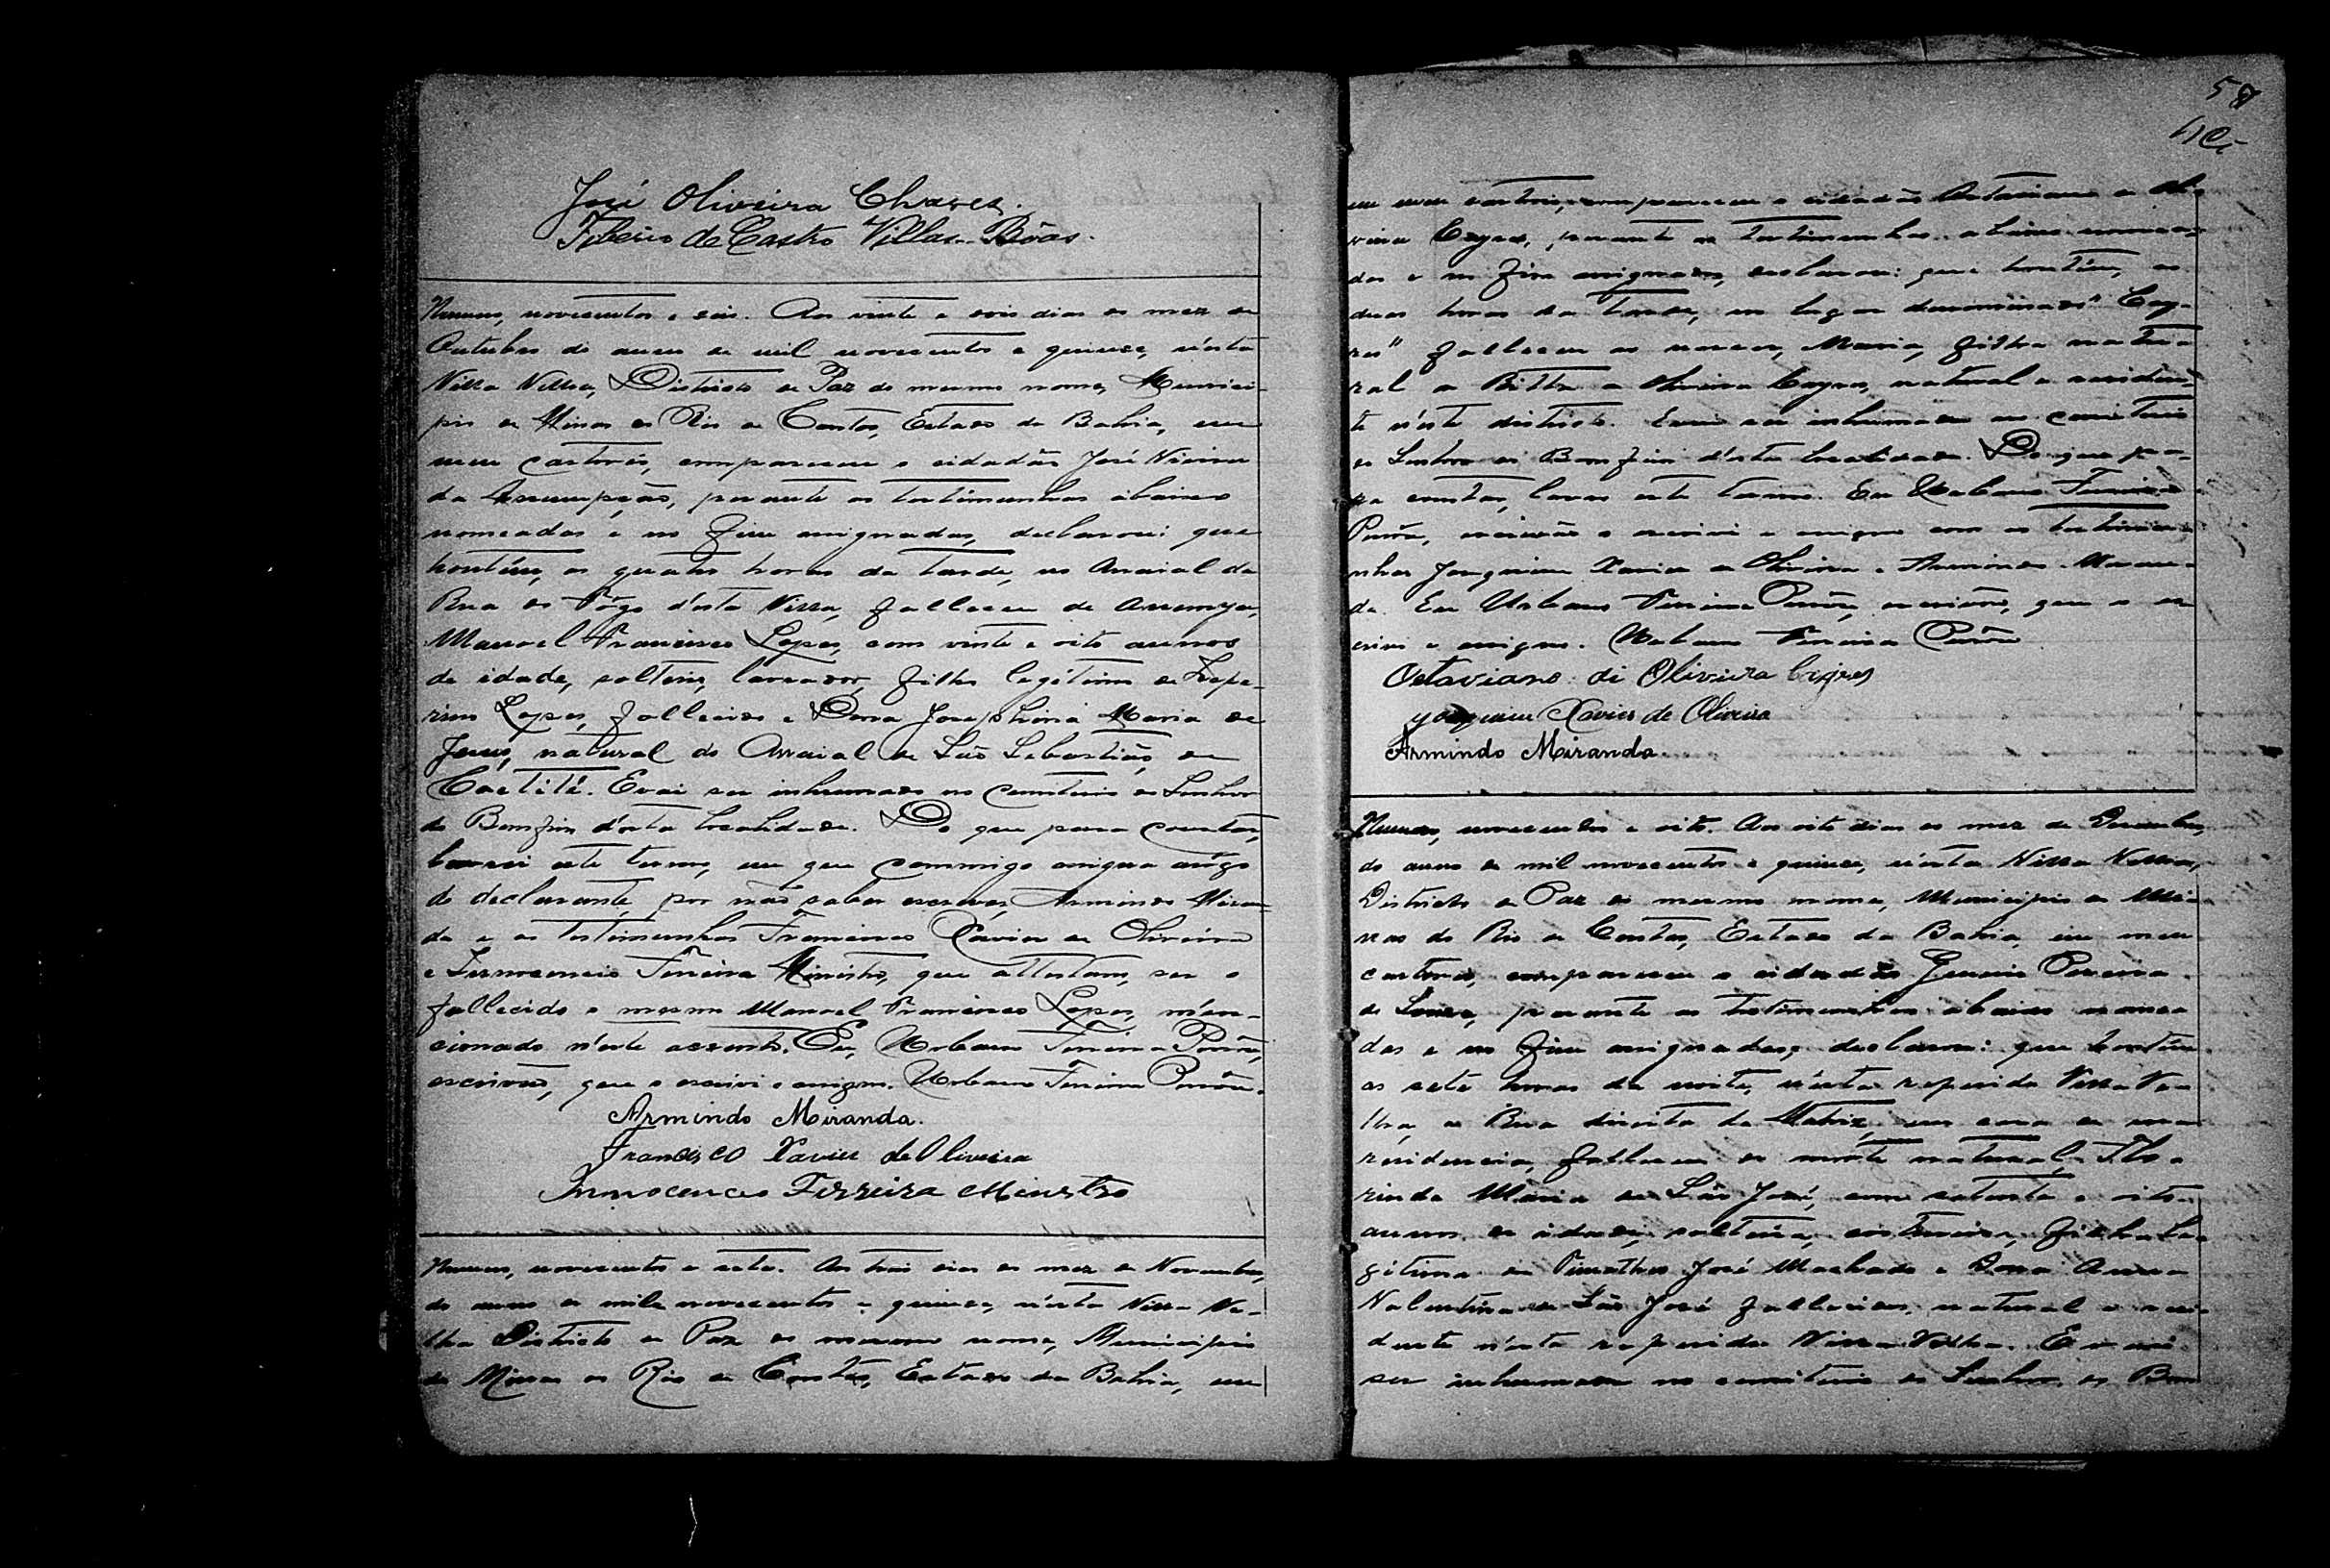 José Oliveira Chaves.
Tiberio de Castro Villas-Bôas.
Numero, novecentos e seis. Aos vinte e dois dias do mez de
Outubro do anno de mil novecentos e quinze, n'esta
Villa Velha, Districto de Paz do mesmo nome, Munici-
pio de Minas do Rio de Contas, Estado da Bahia, em
meu cartorio, compareceu o cidadão José Vieira
da Assumpção, perante as testimunhas abaixo
nomeadas e no fim assignadas, declarou: que
hontêm, as quatro horas da tarde, no Arraial da
Rua do Fôgo d'esta Villa, falleceu de
Manoel Francisco Lopes, com vinte e oito annos
de idade, solteiro, lavrador, filho legitimo de
Lopes, fallecido e Dona Josephina Maria de
Jesus, natural do Arraial de São Sebastião de
Caetité. E vai ser inhumado no Cemiterio do Senhor
do Bomfim d'esta localidade. Do que para constar,
lavrei este termo, em que commigo assigna arôgo
do declarante, por não saber escrever, Armindo Miran-
da e as testimunhas Francisco Xavier de Oliveira
e Innocencio Ferreira Ministro, que attestam, ser o
fallecido o mesmo Manoel Francisco Lopes, men-
cionado n'este assento. Eu, Urbano Ferreira
escrivão, que o escrivi e assigno. Urbano Ferreira
Armindo Miranda.
Francisco Xavier de Oliveira
Innocencio Ferreira Ministro
Numero, novecentos e sete. Aos tres dias do mez de Novembro,
do anno de mil novecentos e quinze, n'esta Villa Ve-
lha Districto de Paz do mesmo nome, Municipio
de Minas do Rio de Contas, Estado da Bahia, em
58
meu cartorio, compareceu o cidadão Octaviano de Oli-
veira perante as testimunhas abaixo nomea-
das e no fim assignadas, declarou: que hontêm, as
duas horas da tarde, no lugar denominado
falleceu ao nascer, Maria, filha natu-
ral de de Oliveira natural e residen-
te n'este districto. E vai ser inhumada no cemiterio
do Senhor do Bomfim d'esta localidade. Do que pa-
ra constar, lavro este termo. Eu Urbano Ferreira
escrivão o escrivi e assigno com as testimu-
nhas Joaquim Xavier de Oliveira e Armindo Miran-
da. Eu Urbano Ferreira escrivão, que o es-
crivi e assigno. Urbano Ferreira
Octaviano de Oliveira
Joaquim Xavier de Oliveira
Armindo Miranda.
Numero, novecentos e oito. Aos oito dias do mez de Dezembro,
do anno de mil novecentos e quinze, n'esta Villa Velha,
Districto de Paz do mesmo nome, Municipio de Mi-
nas do Rio de Contas, Estado da Bahia, em meu
cartorio, compareceu o cidadão Pereira
de Souza, perante as testimunhas abaixo nomea-
das e no fim assignadas, declarou: que hontêm
as sete horas da noite, n'esta referida Villa Ve-
lha, a Rua direita da Matriz, em casa de sua
residencia, falleceu de morte natural, Flo-
rinda Maria de São José, com setenta e oito
annos de idade, solteira, costureira, filha le-
gitima de Timotheo José Machado e Dona Anna
Valentina de São José fallecidos, natural e resi-
dente n'esta referida Villa Velha. E vai
ser inhumada no cemiterio do Senhor do Bom